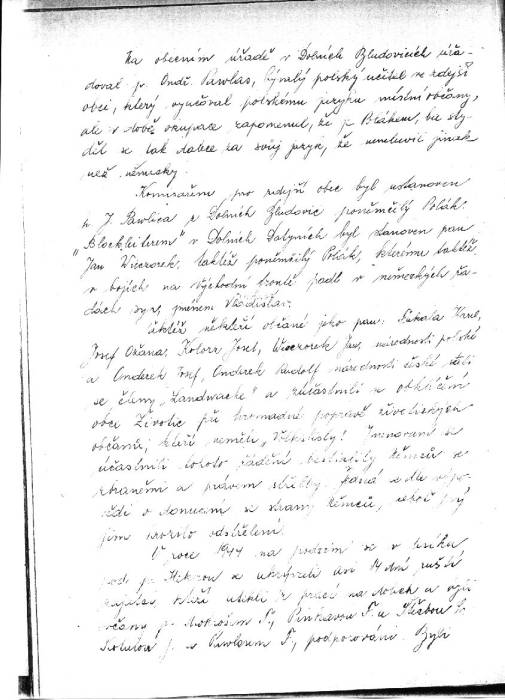 Na obecním úřadě v Dolních Bludovicích úřa-
doval p. Ondř. Pawlas, bývalý polský učitel ve zdejší
obci, který vyučoval polskému jazyku místní občany,
ale v době okupace zapomenul, že je Polákem, be sty-
děl se tak dalece za svůj jazyk, že nemluvil jinak
než německy.
Komisařem pro zdejší obec byl ustanoven
p. J. Pawlica z Dolních Bludovic poněmčilý Polák.
"Blockleiterem" v Dolních Datyních byl stanoven pan
Jan Wieczorek, taktéž poněmčilý Polák, kterému taktéž
v bojích na východní frontě padl v německých řa-
dách syn, jménem Vladislav.
Taktéž někteří občané jako pan: Karel,
Josef Ožana, Kolorz Josef, Wieczorek Jan, národnosti polské
a Onderek Josef, Onderek Rudolf národnosti české stali
se členy "Landwache" a zúčastnili se obklíčení
obce Životic při hromadné popravě civilských
občanů, kteří neměli "Volkslisty". Jmenovaní se
účastnili tohoto řádění bestiality Němců se
zbraněmi a právem střelby.
o donucení se strany Němců, neboť prý
jim hrozilo odstřelení.
V roce 1944 na podzim se v lesíku
pod p. se ukrývali asi 14 dní ruští
zajatci, kteří utekli z prací na dolech a byli
občany p. F., Pinkavou F. a
J. a Pawlasem F., podporováni. Byli